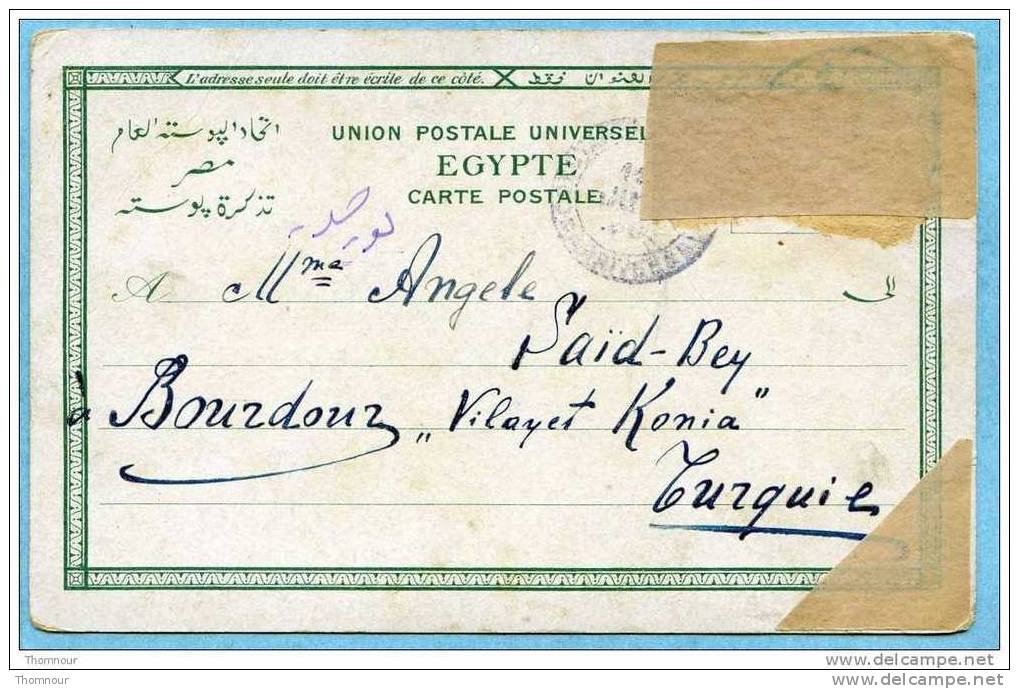 L'adresse seule doit être écrite de ce côté. العنوان فقط
اتحاد البوسته العام
مصر
تذكرة بوسته
UNION POSTALE UNIVERSEL
EGYPTE
CARTE POSTALE
A Mme Angele الى
Saïd-Bey
à Bourdour „Vilayet Konia"
Turquie
Thomnour
Thomnour
www.delcampe.net
www.delcampe.net